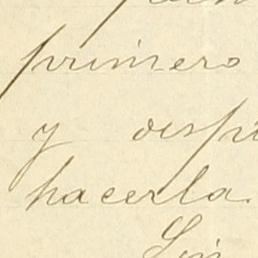 primero
y despu
hacerla.
Sin